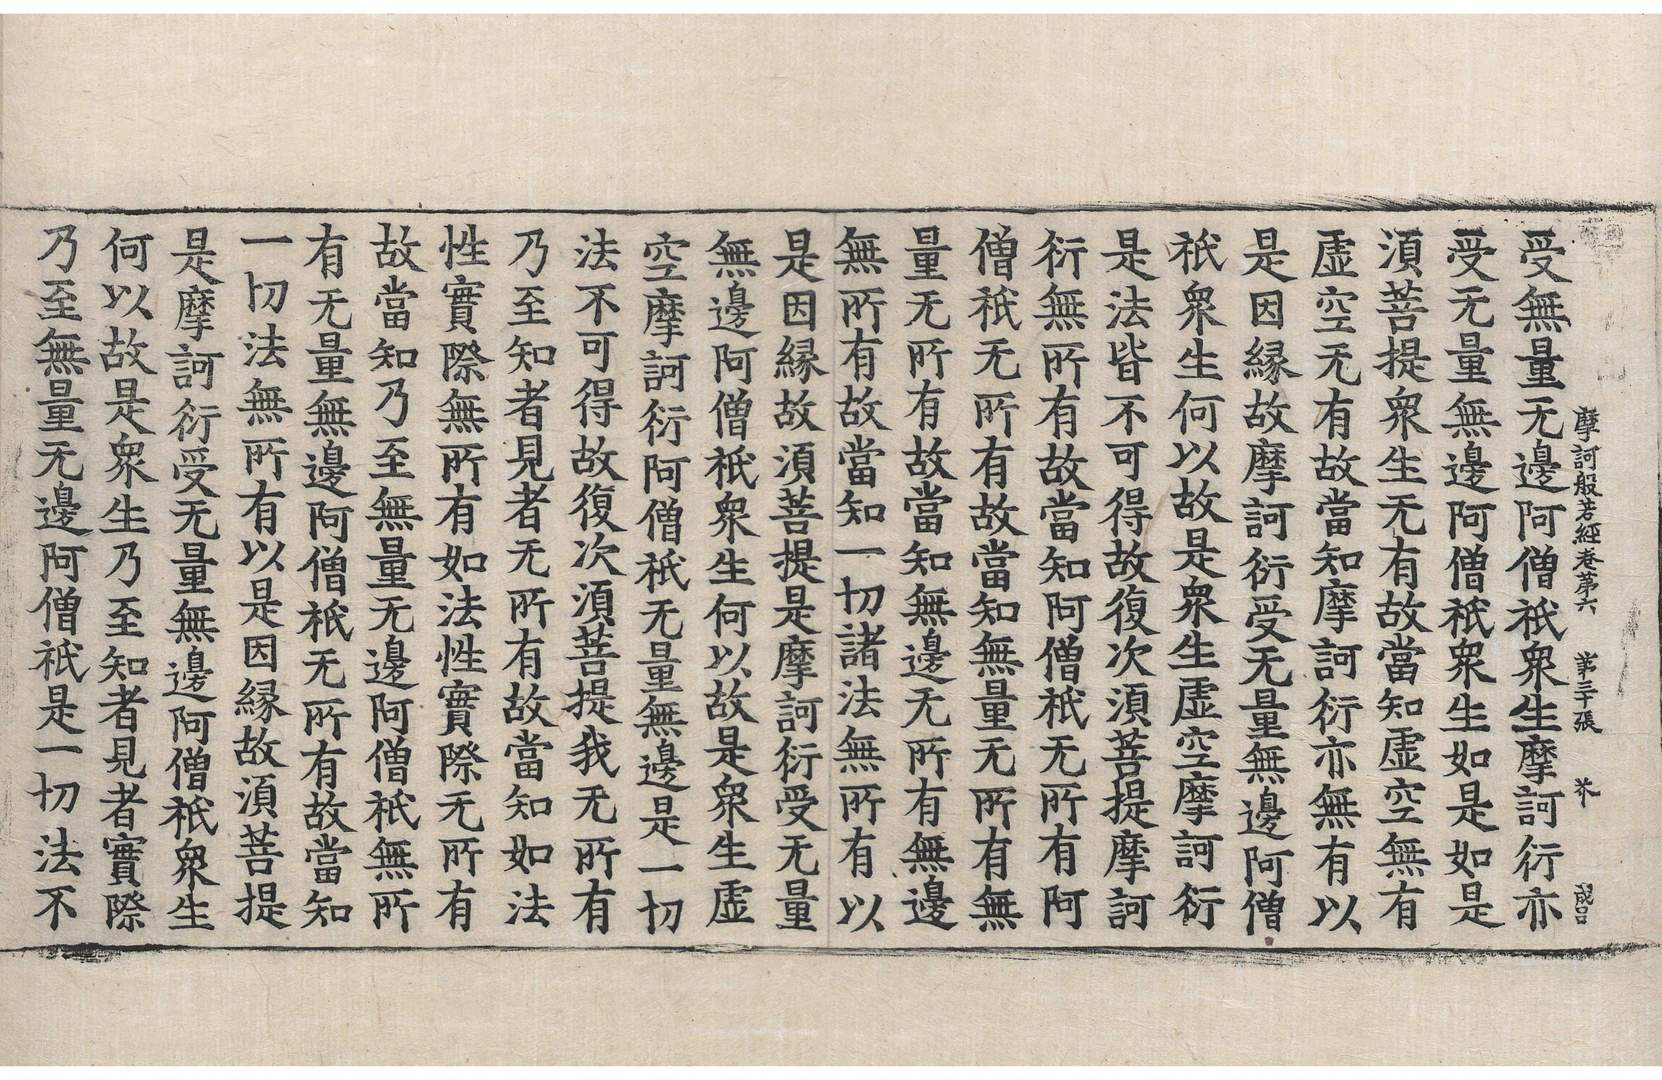 摩訶般若經卷第六 第三十張 芥
受無量无邊阿僧祇衆生摩訶衍亦
受无量無邊阿僧祇衆生如是如是
湏菩提衆生无有故當知虛空無有
虛空无有故當知摩訶衍亦無有以
是因縁故摩訶衍受无量無邊阿僧
祇衆生何以故是衆生虛空摩訶衍
是法皆不可得故復次湏菩提摩訶
衍無所有故當知阿僧祇无所有阿
僧祇无所有故當知無量无所有無
量无所有故當知無邊无所有無邊
無所有故當知一切諸法無所有以
是因縁故湏菩提是摩訶衍受无量
無邊阿僧祇衆生何以故是衆生虛
空摩訶衍阿僧祇无量無邊是一切
法不可得故復次湏菩提我无所有
乃至知者見者无所有故當知如法
性實際無所有如法性實際无所有
故當知乃至無量无邊阿僧祇無所
有无量無邊阿僧祇无所有故當知
一切法無所有以是因縁故湏菩提
是摩訶衍受无量無邊阿僧祇衆生
何以故是衆生乃至知者見者實際
乃至無量无邊阿僧祇是一切法不